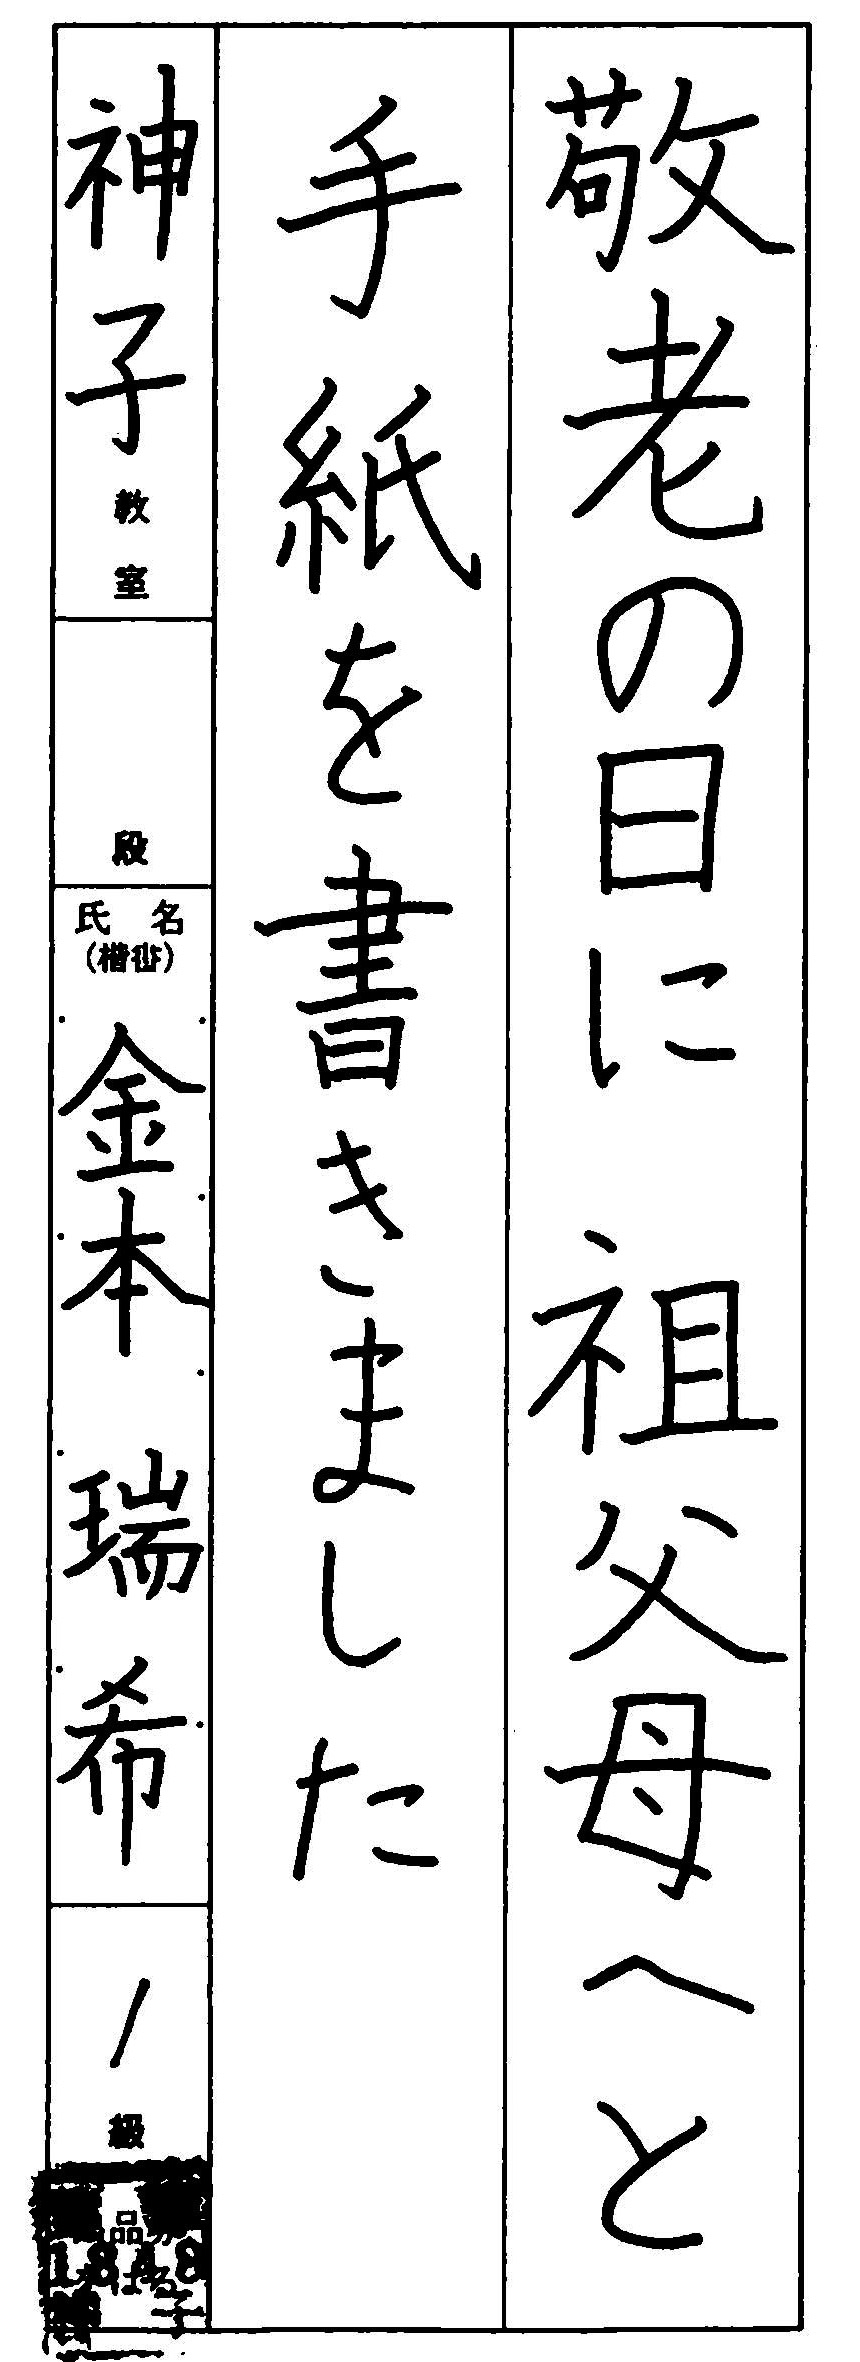 敬老の日に 祖父母へと
手紙を書きました
神子教室
段
氏名
(楷書)
金本 瑞希
1級